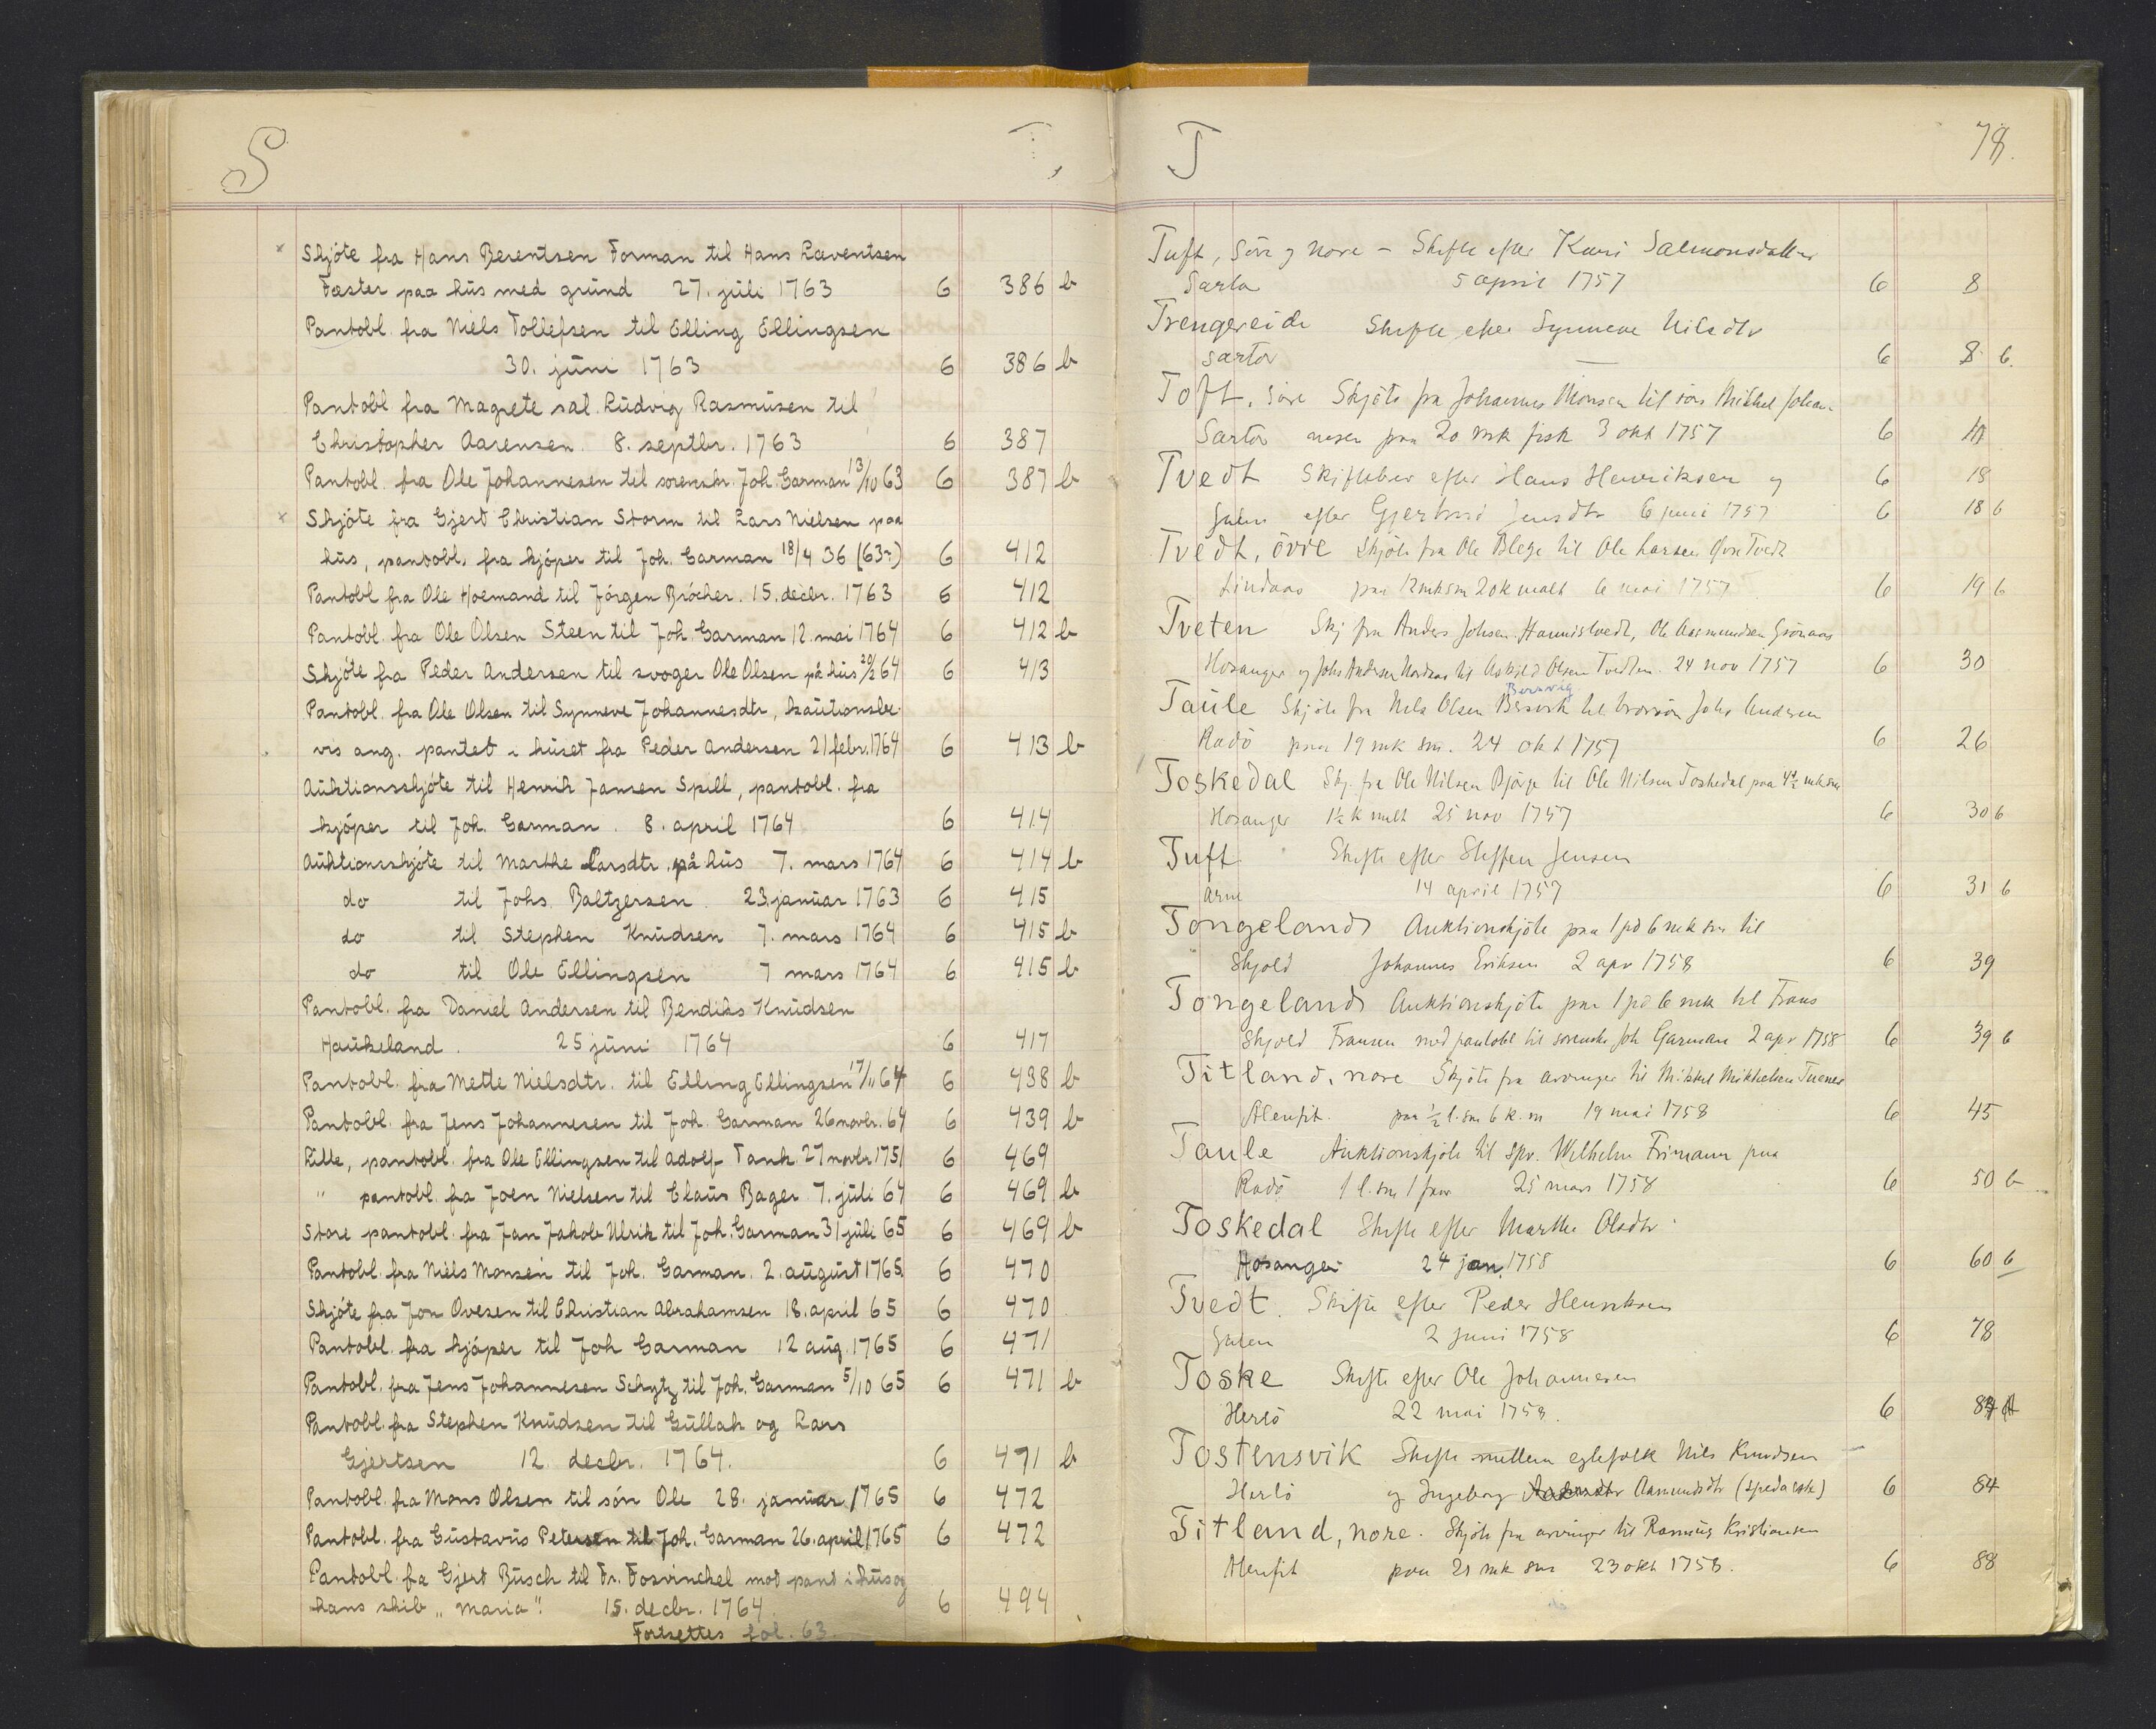 S T,
Skjöte fra Hans Berentsen Forman til Hans Laventsen
Fæster paa hus med grund 27. juli 1763 6 386 b
Pantobl. fra Niels Tollefsen til Elling Ellingsen
30. juni 1763 6 386 b
Pantobl. fra Magrete sal. Ludvig Rasmusen til
Christopher Aarensen. 8. septbr. 1763 6 387
Pantobl. fra Ole Johannesen til sorenskr. Joh. Garman 13/10 63 6 387 b
Skjöte fra Gjert Christian Storm til Lars Nielsen paa
hus, pantobl. fra kjöper til Joh. Garman 18/4 36 (63?) 6 412
Pantobl. fra Ole Hoemand til Jörgen Bröcher. 15. decbr. 1763 6 412
Pantobl. fra Ole Olsen Steen til Joh. Garman 12. mai 1764 6 412 b
Skjöte fra Peder Andersen til svoger Ole Olsen på hus 20/2 64 6 413
Pantobl. fra Ole Olsen til Synneve Johannesdtr, kautionsbe-
vis ang. pantet i huset fra Peder Andersen 21 febr. 1764 6 413 b
Auktionsskjöte til Henrik Jansen Spill, pantobl. fra
kjöper til Joh. Garman. 8. april 1764 6 414
Auktionsskjöte til Marthe Larsdtr. på hus 7. mars 1764 6 414 b
do til Johs. Baltzersen. 23. januar 1763 6 415
do til Stephen Knudsen 7. mars 1764 6 415 b
do til Ole Ellingsen 7 mars 1764 6 415 b
Pantobl. fra Daniel Andersen til Bendiks Knudsen
Haukeland. 25 juni 1764 6 417
Pantobl. fra Mette Nielsdtr. til Elling Ellingsen 17/11 64 6 438 b
Pantobl. fra Jens Johannesen til Joh. Garman 26 novbr. 64 6 439 b
Lille, pantobl. fra Ole Ellingsen til Adolf Tank 27 novbr 1751 6 469
" pantobl. fra Joen Nielsen til Claus Bager 7. juli 64 6 469 b
Store pantobl. fra Jan Jakob Ulrik til Joh. Garman 31 juli 65 6 469 b
Pantobl. fra Niels Monsen til Joh. Garman. 2. august 1765. 6 470
Skjöte fra Jon Ovesen til Christian Abrahamsen 18. april 65 6 470
Pantobl. fra kjöper til Joh Garman 12 aug. 1765 6 471
Pantobl. fra Jens Johannesen Schytz til Joh. Garman 5/10 65 6 471 b
Pantobl. fra Stephen Knudsen til Gullak og Lars
Gjertsen 12. decbr. 1764. 6 471 b
Pantobl. fra Mons Olsen til sön Ole 28. januar. 1765 6 472
Pantobl. fra Gustavus Petersen til Joh. Garman 26. april 1765 6 472
Pantobl. fra Gjert Busch til Fr. Fosvinckel mot pant i hus og
hans skib "Maria". 15. decbr. 1764. 6 494
Fortsettes fol. 63.
T 78.
Tuft, Söre og Nore - Skifte efter Kari Salmonsdatter
Sartor 5 april 1757 6 8
Trengereide Skifte efter Synneve Nilsdtr
Sartor — 6 8 b.
Toft, söre Skjöte fra Johannes Monsen til sön Mikkel Johan-
Sartor nesen paa 20 mk fisk 3 okt 1757 6 10
Tvedt Skiftebrev efter Hans Henriksen og 6 18
Gulen efter Gjertrud Jensdtr 6 juni 1757 6 18 b
Tvedt, övre Skjöte fra Ole Blege til Ole Larsen Övre Tvedt
Lindaas paa 12 mk sm 20 k malt 6 mai 1757 6 19 b
Tveten Skj fra Anders Johsen Hannistvedt, Ole Aasmundsen Grönaas
Hosanger og Johs Andersen Nordaas til Askjeld Olsen Tvedten. 24 nov 1757 6 30
Taule Skjöte fra Nils Olsen Bersvik til brorsön Johs Andersen
Radö paa 19 mk sm. 24 okt 1757 6 26
Toskedal Skj. fra Ole Nilsen Bjørge til Ole Nilsen Toskedal paa 4½ mk sm
Hosanger 1½ k malt 25 nov 1757 6 30 b
Tuft Skifte efter Steffen Jensen
Arne 14 april 1757 6 31 b
Tongeland Auktionskjöte paa 1 pd 6 mk sm til
Skjold Johannes Eriksen 2 apr 1758 6 39
Tongeland Auktionskjöte paa 1 pd 6 mk til Frans
Skjold Fransen med pantobl til sorenskr Joh Garman 2 apr 1758 6 39 b
Titland, nore Skjöte fra arvinger til Mikkel Mikkelsen
Alenfit. paa ½ l. sm 6 k. m 19 mai 1758 6 45
Taule Auktionskjöte til spr. Wilhelm Frimann paa
Radö 1 l. sm 25 mars 1758 6 50 b
Toskedal Skifte efter Marthe Olsdtr
Hosanger 24 jan. 1758 6 60 b
Tvedt. Skifte efter Peder Henriksen
Gulen 2 juni 1758 6 78
Toske Skifte efter Ole Johannesen
Herlö 22 mai 1758. 6
Tostensvik Skifte mellem egtefolk Nils Knudsen
Herlö og Ingeborg Aamundsdtr (spedalsk) 6 84
Titland, nore. Skjöte fra arvinger til Rasmus Kristiansen
Alenfit paa 21 mk sm 23 okt 1758. 6 88